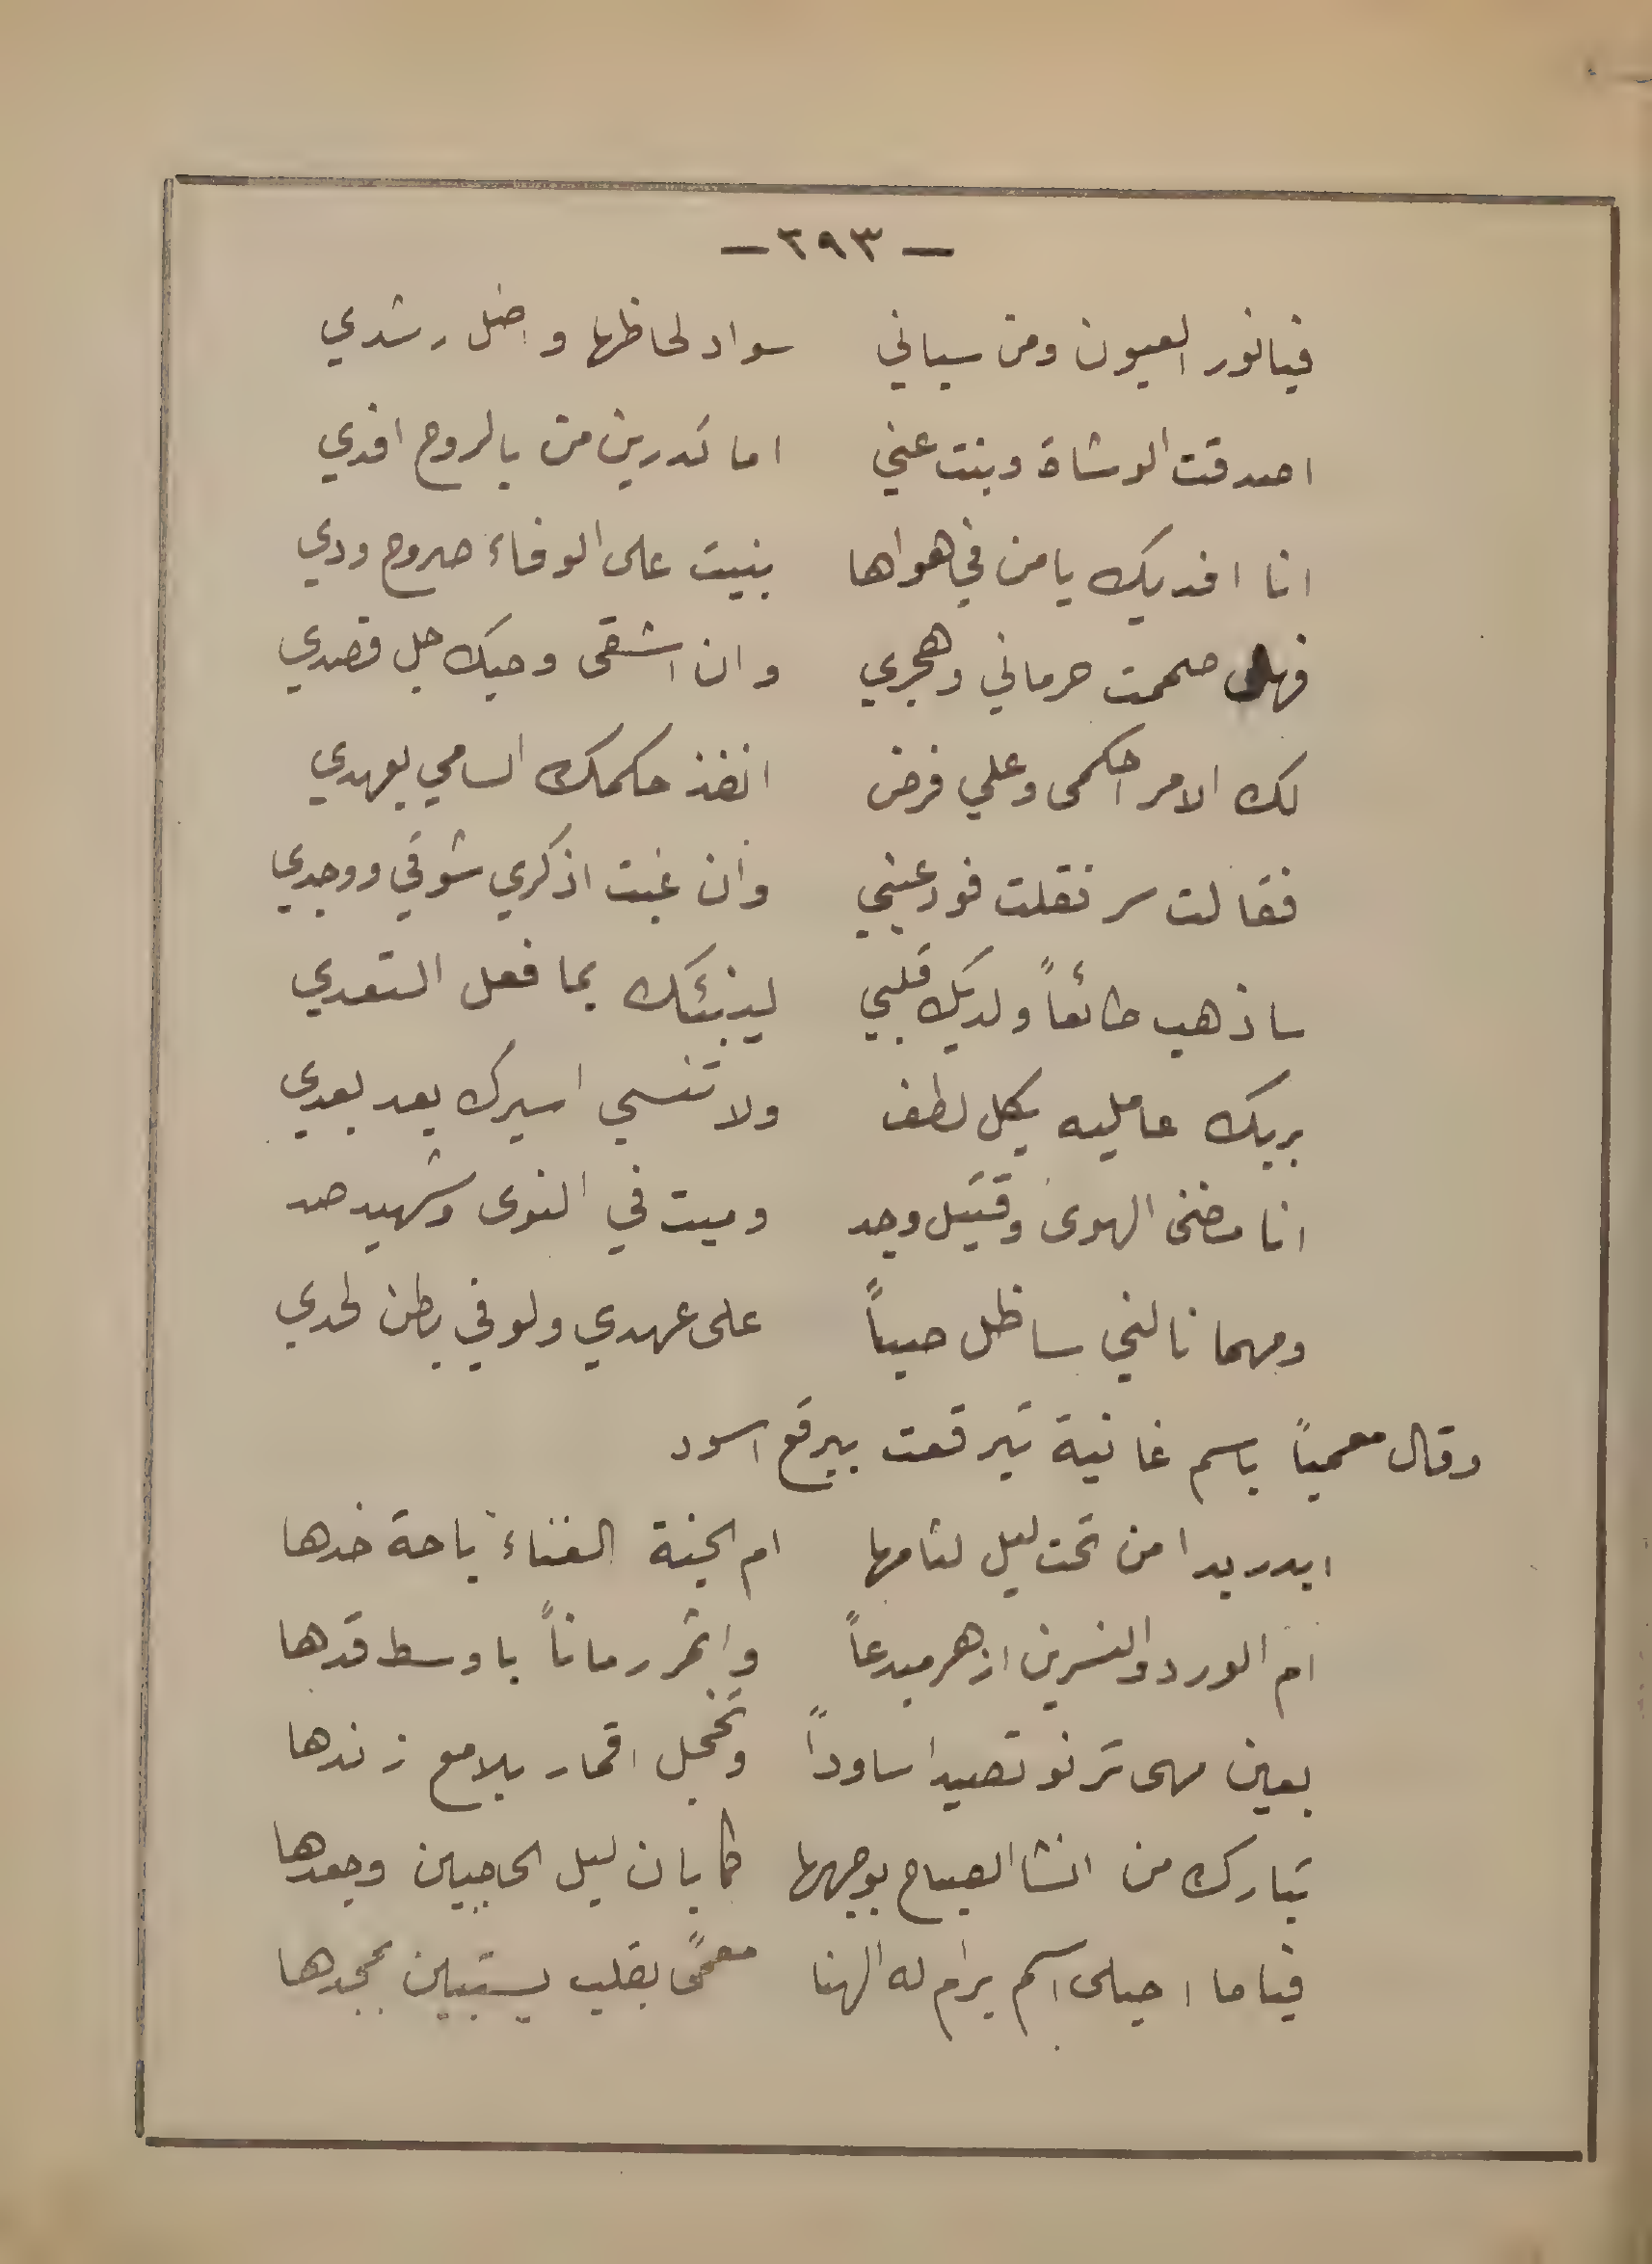 — ٢٩٣ —
فيا نور العيون ومن سباني سواد لحاظها واضل رشدي
اصدقت الوشاة وبنت عني اما تدرين من بالروح افدي
انا افديك يا من في هواها بنيت على الوفاء صروح ودي
فهل صممت حرماني وهجري وان اشقى وحبك جل قصدي
لك الامر احكمى وعلي فرض انفذ حكمك السامي بعهدي
فقالت سر فقلت فودعيني وان غبت اذكري شوقي ووجدي
ساذهب طائعاً ولديك قلبي لينبئك بما فعل التعدي
بربك عامليه بكل لطف ولا تنسي اسيرك بعد بعدي
انا مضنى الهوى وقتيل وجد وميت في النوى وشهيد صد
ومهما نالني ساظل صباً على عهدي ولو في بطن لحدي
وقال معمياً باسم غانية تبرقعت ببرقع اسود
ابدر بدا من تحت ليل لثامها ام الجنة الغناء باحة خدها
ام الورد والنسرين ازهر مبدعاً واثمر رماناً باوسط قدها
بعين مهى ترنو تصيد اساوداً وتخجل اقمار بلامع زندها
تبارك من انشا الصباح بوجهها كما بان ليل الحاجبين وجعدها
فيا ما احيلى اسم يرام له الهنا معمىً بقلب يستبين بمجدها